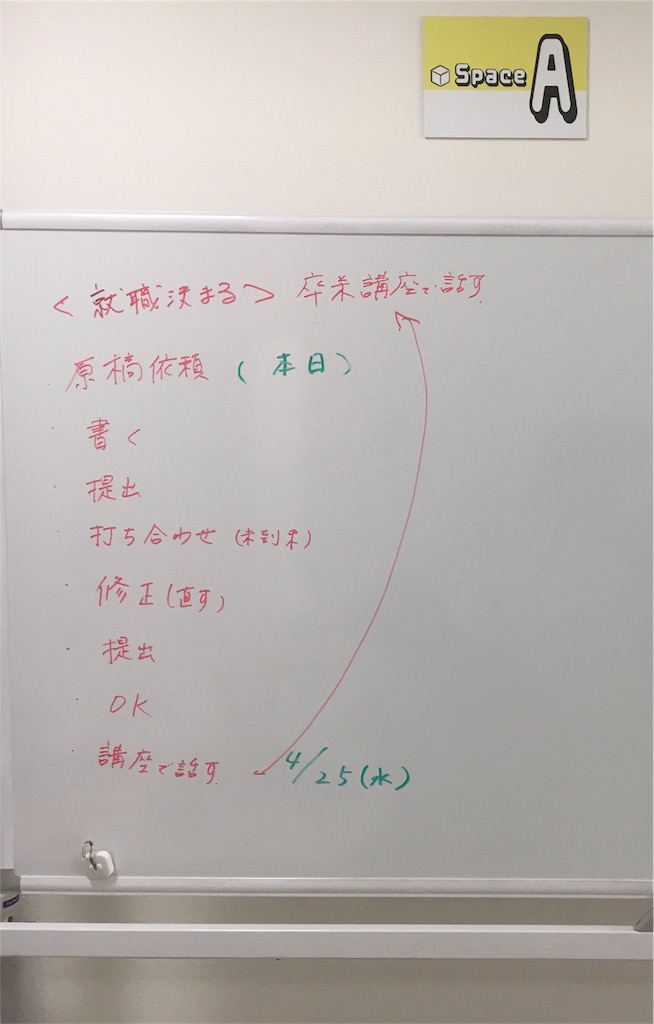 Space A
<就職決まる> 卒業講座で話す
・原稿依頼 (本日)
・書く
・提出
・打ち合わせ
・修正(直す)
・提出
・OK
・講座で話す 4/25(水)